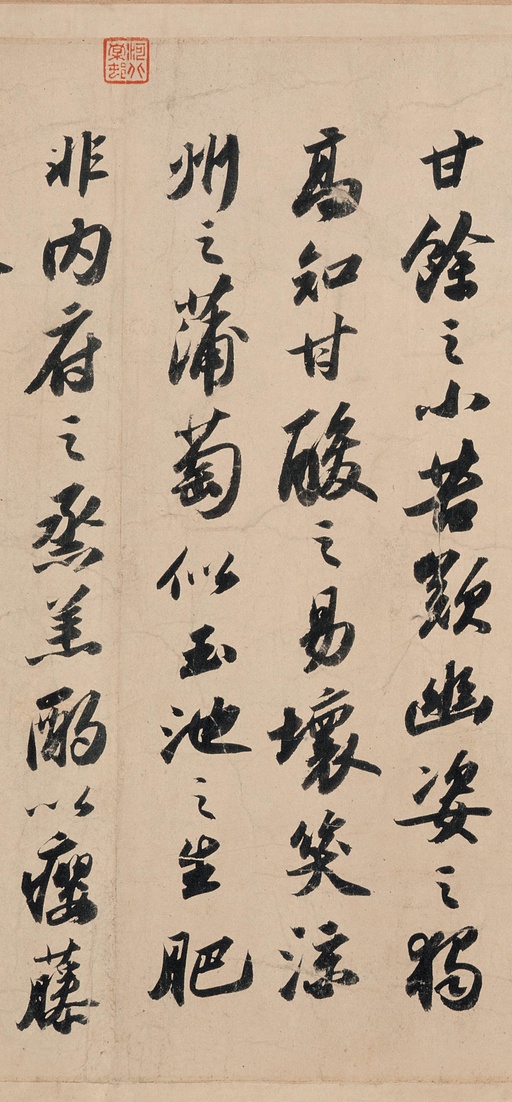 甘餘之小苦歎幽姿之獨
高知甘酸之易壞笑涼
州之蒲萄似玉池之生肥
非內府之烝羔酌以癭藤